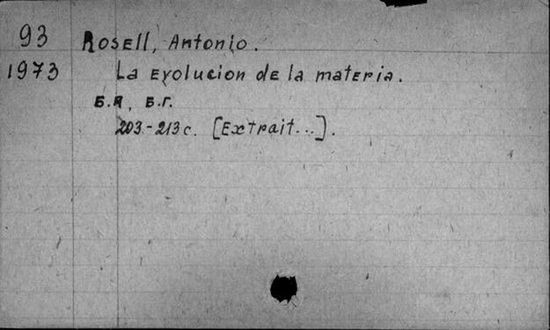 93 Rosell, Antonio.
1973 La evolucion de la materia.
Б.Я, Б.Г.
203-213 с. [Extrait...].